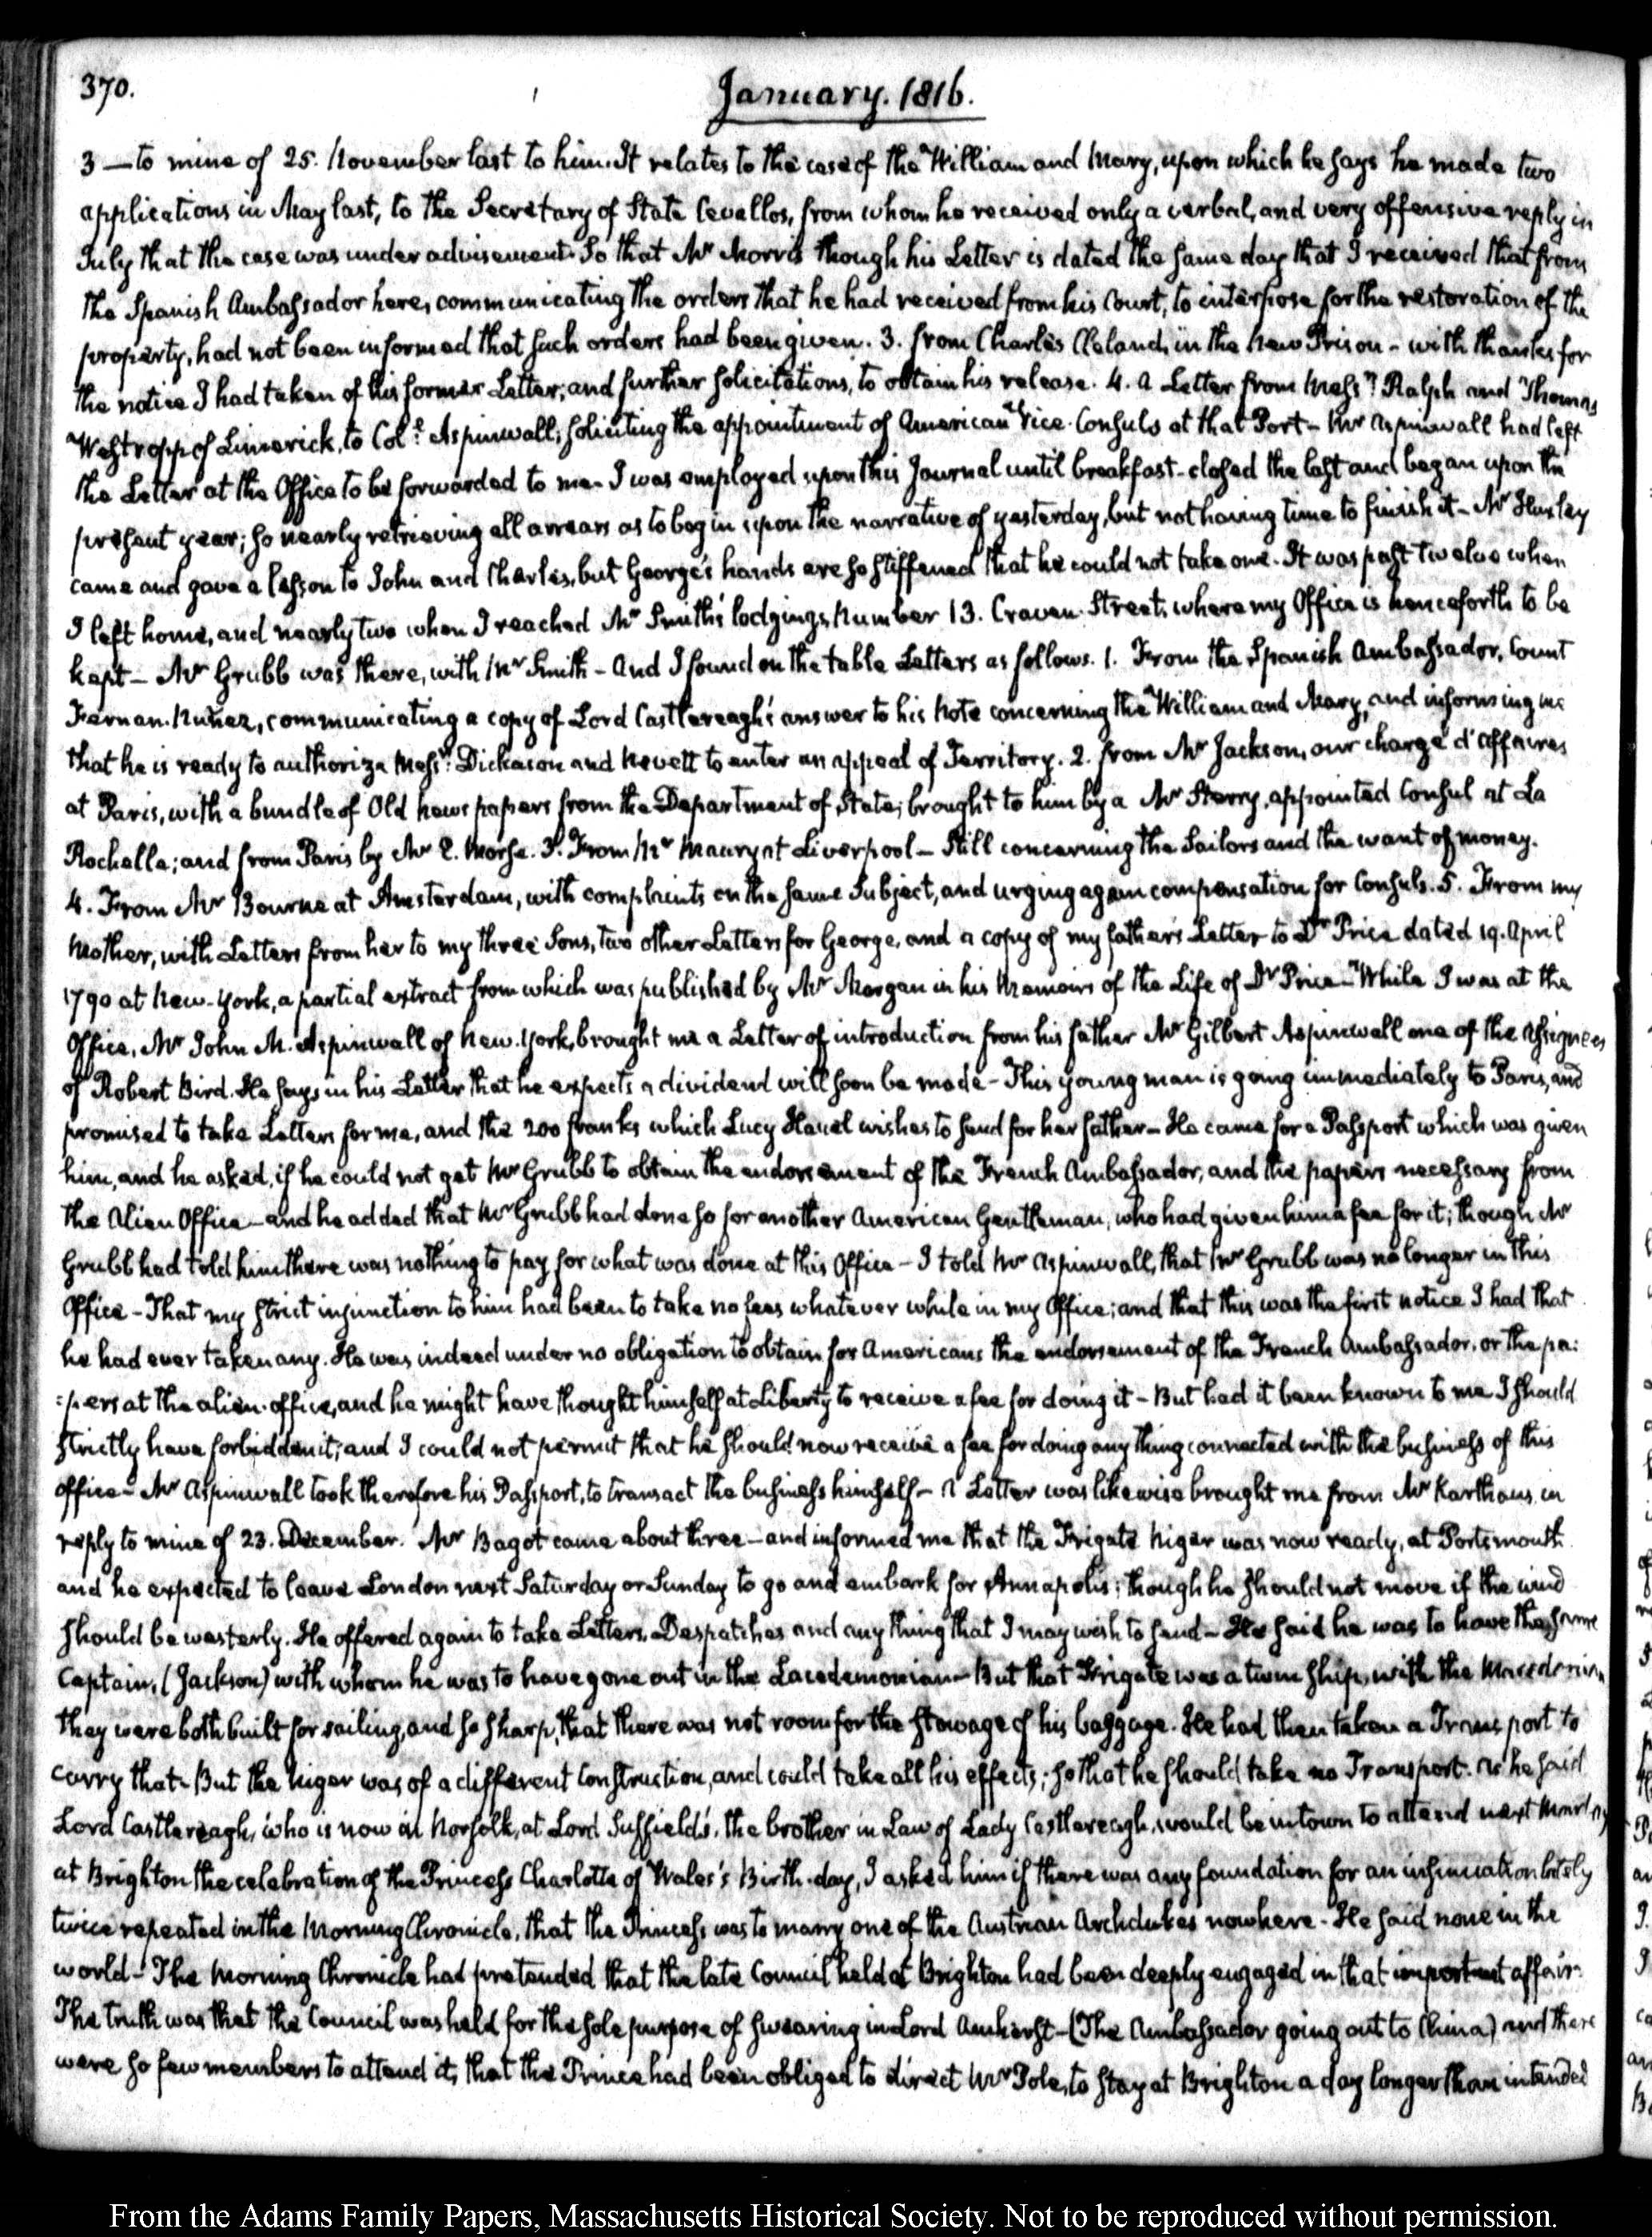 370.
January. 1816.
3 — to mine of 25. November last to him. It relates to the case of the William and Mary, upon which he says he made two
applications in May last, to the Secretary of State Cevallos, from whom he received only a verbal, and very offensive reply in
July that the case was under advisement. So that Mr Morris though his Letter is dated the same day that I received that from
the Spanish Ambassador here, communicating the orders that he had received from his Court, to interpose for the restoration of the
property, had not been informed that such orders had been given. 3. from Charles Cleland, in the New Prison - with thanks for
the notice I had taken of his former Letter, and further solicitations, to obtain his release. 4. A Letter from Messrs Ralph and Thomas
Westropp of Limerick, to Coll. Aspinwall, soliciting the appointment of American Vice-Consuls at that Port - Mr Aspinwall had left
the Letter at the Office to be forwarded to me - I was employed upon this Journal until breakfast - closed the last and began upon the
present year; so nearly retrieving all arrears as to begin upon the narrative of yesterday, but not having time to finish it - Mr Huxley
came and gave a lesson to John and Charles, but George's hands are so stiffened that he could not take one. It was past twelve when
I left home, and nearly two when I reached Mr Smith's lodgings, Number 13. Craven Street, where my Office is henceforth to be
kept - Mr Grubb was there, with Mr Smith - And I found on the table Letters as follows. 1. From the Spanish Ambassador, Count
Fernan-Nuñez, communicating a copy of Lord Castlereagh's answer to his Note concerning the William and Mary, and informing me
that he is ready to authorize Messrs Dickason and Nevett to enter an appeal of Territory. 2. from Mr Jackson, our chargé d'affaires
at Paris, with a bundle of Old newspapers from the Department of State; brought to him by a Mr Sterry, appointed Consul at La
Rochelle; and from Paris by Mr E. Morse. 3. From Mr Maury at Liverpool - Still concerning the Sailors and the want of money.
4. From Mr Bourne at Amsterdam, with complaints on the same subject, and urging again compensation for Consuls. 5. From my
Mother, with Letters from her to my three Sons, two other Letters for George, and a copy of my father's Letter to Dr Price dated 19. April
1790 at New-York, a partial extract from which was published by Mr Morgan in his Memoirs of the Life of Dr Price - While I was at the
Office, Mr John M. Aspinwall of New-York, brought me a Letter of introduction from his father Mr Gilbert Aspinwall one of the assignees
of Robert Bird. He says in his Letter that he expects a dividend will soon be made - This young man is going immediately to Paris, and
promised to take Letters for me, and the 200 franks which Lucy Hanel wishes to send for her father - He came for a Passport which was given
him, and he asked, if he could not get Mr Grubb to obtain the endorsement of the French Ambassador, and the papers necessary from
the Alien Office - and he added that Mr Grubb had done so for another American Gentleman, who had given him a fee for it; though Mr
Grubb had told him there was nothing to pay for what was done at this Office - I told Mr Aspinwall, that Mr Grubb was no longer in this
Office - That my strict injunction to him had been to take no fees whatever while in my Office; and that this was the first notice I had that
he had ever taken any. He was indeed under no obligation to obtain for Americans the endorsement of the French Ambassador, or the pa:
:pers at the alien-office, and he might have thought himself at Liberty to receive a fee for doing it - But had it been known to me I should
strictly have forbidden it; and I could not permit that he should now receive a fee for doing any thing connected with the business of this
office - Mr Aspinwall took therefore his Passport, to transact the business himself - A Letter was likewise brought me from Mr Karthaus, in
reply to mine of 23. December. Mr Bagot came about three - and informed me that the Frigate Niger was now ready, at Portsmouth
and he expected to leave London next Saturday or Sunday to go and embark for Annapolis; though he should not move if the wind
should be westerly. He offered again to take Letters, Despatches and any thing that I may wish to send - He said he was to have the same
Captain, (Jackson) with whom he was to have gone out in the Lacedemonian - But that Frigate was a twin ship, with the Macedonian
they were both built for sailing, and so sharp, that there was not room for the stowage of his baggage. He had then taken a Transport to
carry that - But the Niger was of a different construction, and could take all his effects; so that he should take no Transport. As he said
Lord Castlereagh, who is now in Norfolk, at Lord Suffield's, the brother in Law of Lady Castlereagh, would be in town to attend next Monday
at Brighton the celebration of the Princess Charlotte of Wales's Birth-day, I asked him if there was any foundation for an insinuation lately
twice repeated in the Morning Chronicle, that the Princess was to marry one of the Austrian Archdukes now here - He said none in the
world - The Morning Chronicle had pretended that the late Council held at Brighton had been deeply engaged in that important affair -
The truth was that the Council was held for the sole purpose of swearing in Lord Amherst - (The Ambassador going out to China) and there
were so few members to attend it, that the Prince had been obliged to direct Mr Pole, to stay at Brighton a day longer than intended
From the Adams Family Papers, Massachusetts Historical Society. Not to be reproduced without permission.